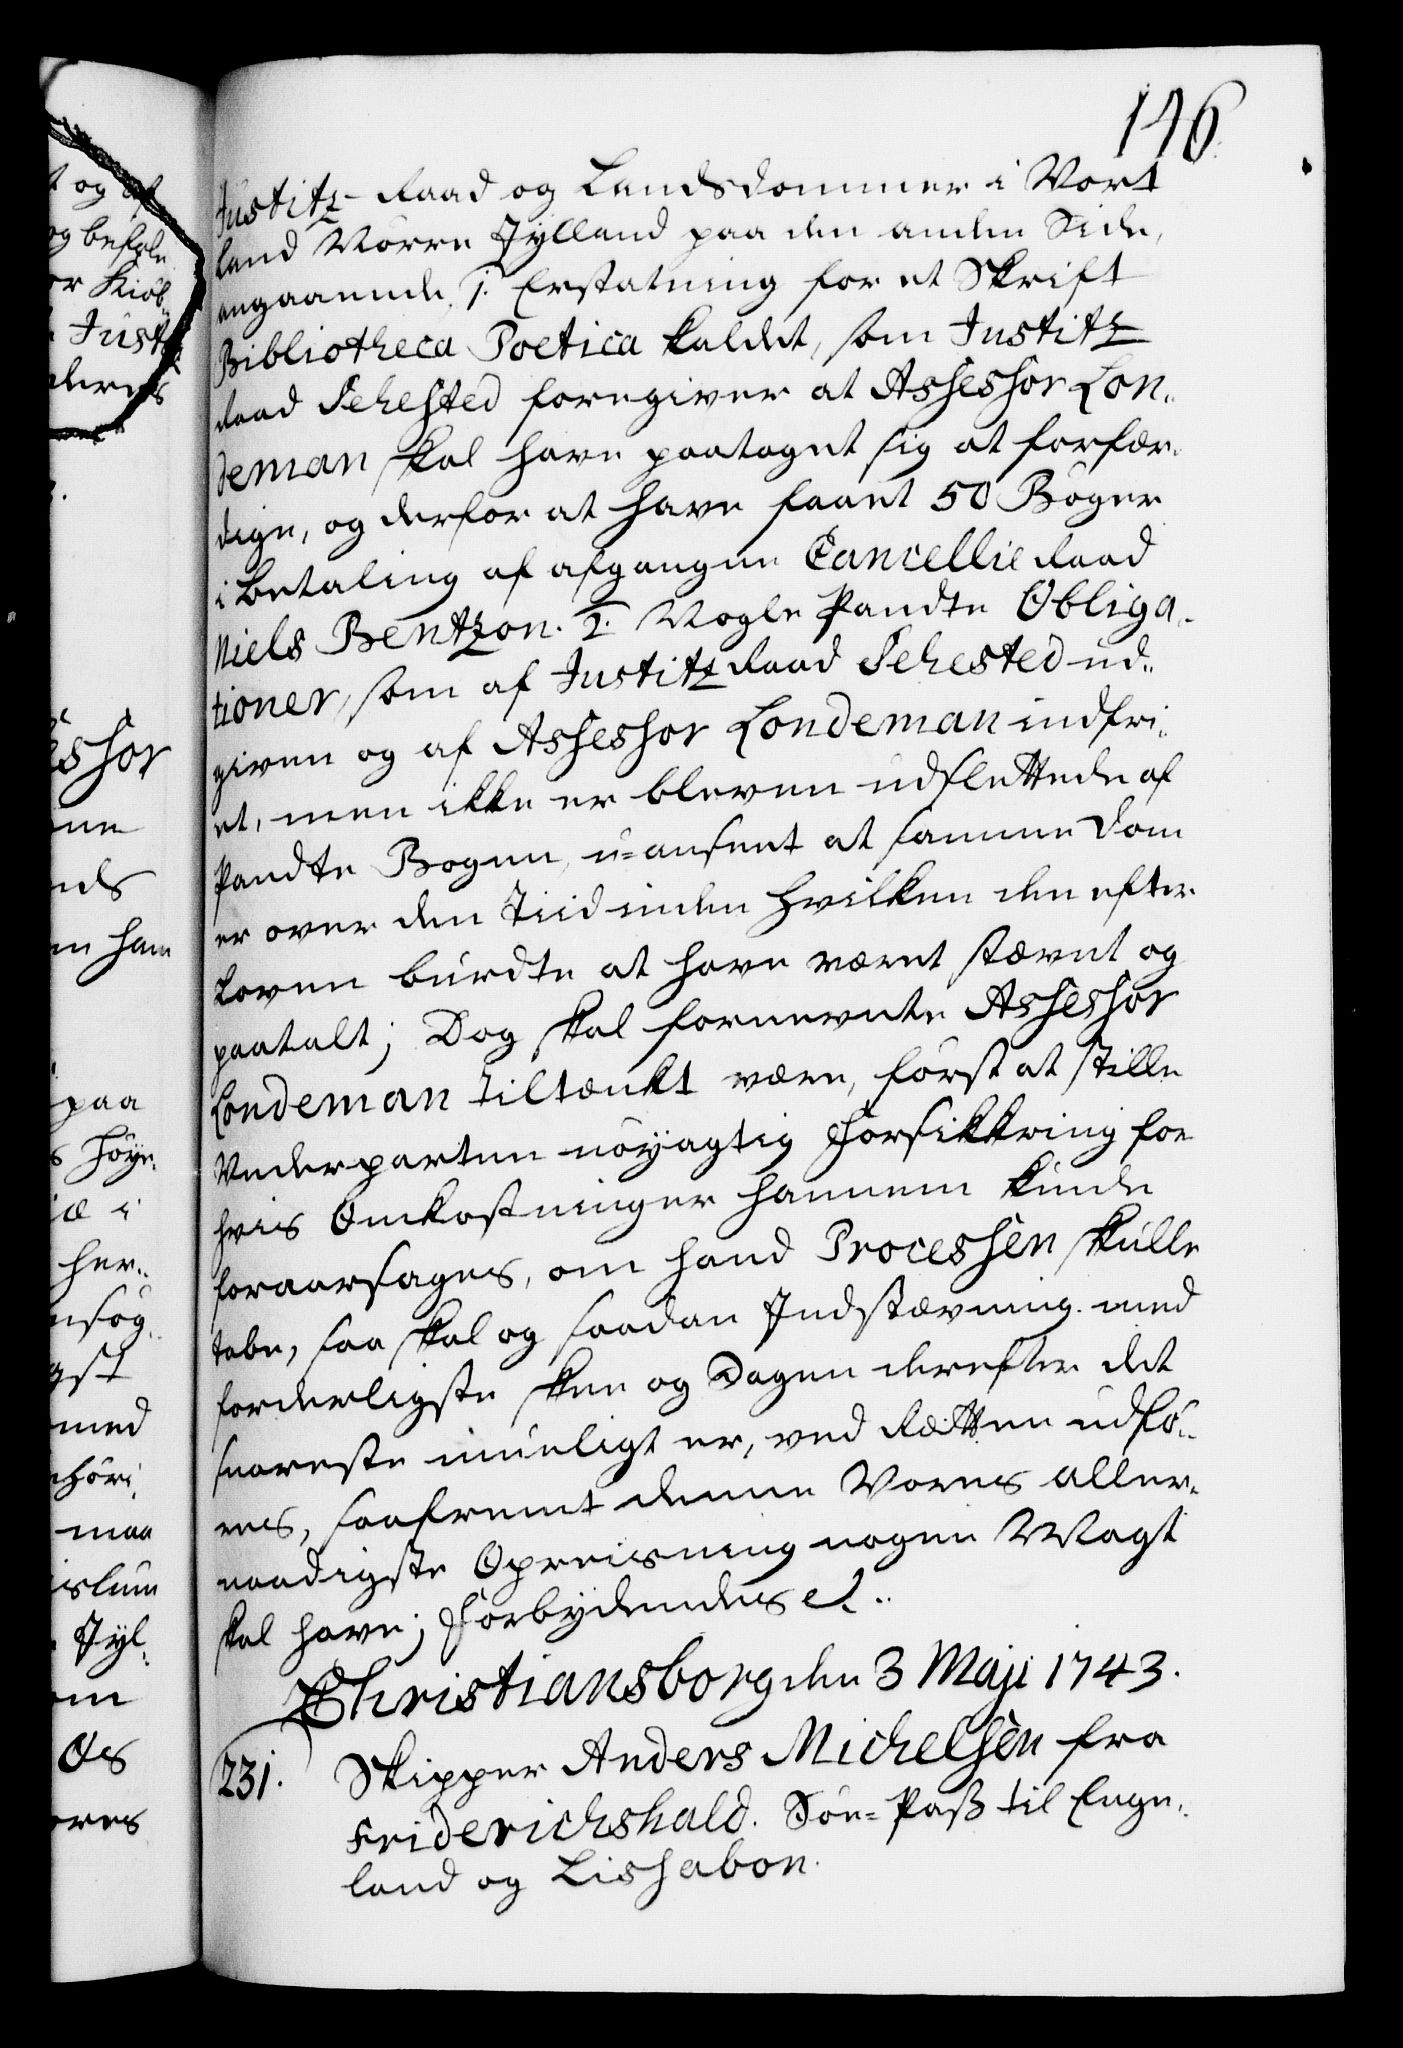 146.
Justitz-Raad og Landsdommer i Vort
Land Nörre Jylland paa den anden Side,
angaaende, 1. Erstatning for et Skrift
Bibliotheca Poetica kaldet, som Justitz
Raad Sehested foregiver at Assessor Lon-
deman skal have paataget sig at forfær-
dige, og derfor at have faaet 50 Bøger
i Betaling af afgangen Cancellie Raad
Niels Bentzon. 2. Nogle Pandte Obliga-
tioner, som af Justitz Raad Sehested ud-
given og af Assessor Londeman indfri-
et, men ikke er bleven udslettede af
Pandte Bogen, u-anseet at samme Dom
er over den Tiid inden hvilken den efter
Loven burdte at have været stævnt og
paatalt; Dog skal fornevnte Assessor
Londeman tiltænkt være, først at stille
Vederparten nöyagtig Forsikkring for
hvis Omkostninger hannem kunde
foraarsages, om hand Processen skulle
tabe, saa skal og saadan Indstævning med
forderligste skee og Sagen derefter det
snareste mueligt er, ved Rætten udfø-
res, saafremt denne Vores aller-
naadigste Opreisning nogen Magt
skal have; Forbydendes etc.
Christiansborg den 3 Maji 1743.
231. Skipper Anders Michelsen fra
Friderichshald. Søe-Pass til Enge-
land og Lissabon.
t og af
og befale
or Kiøb-
Just
deres
essor
nds
en ham
paa
s Höye
iæ i
her-
nsøg-
gst
med
maa
Jyl-
om
Os
ores